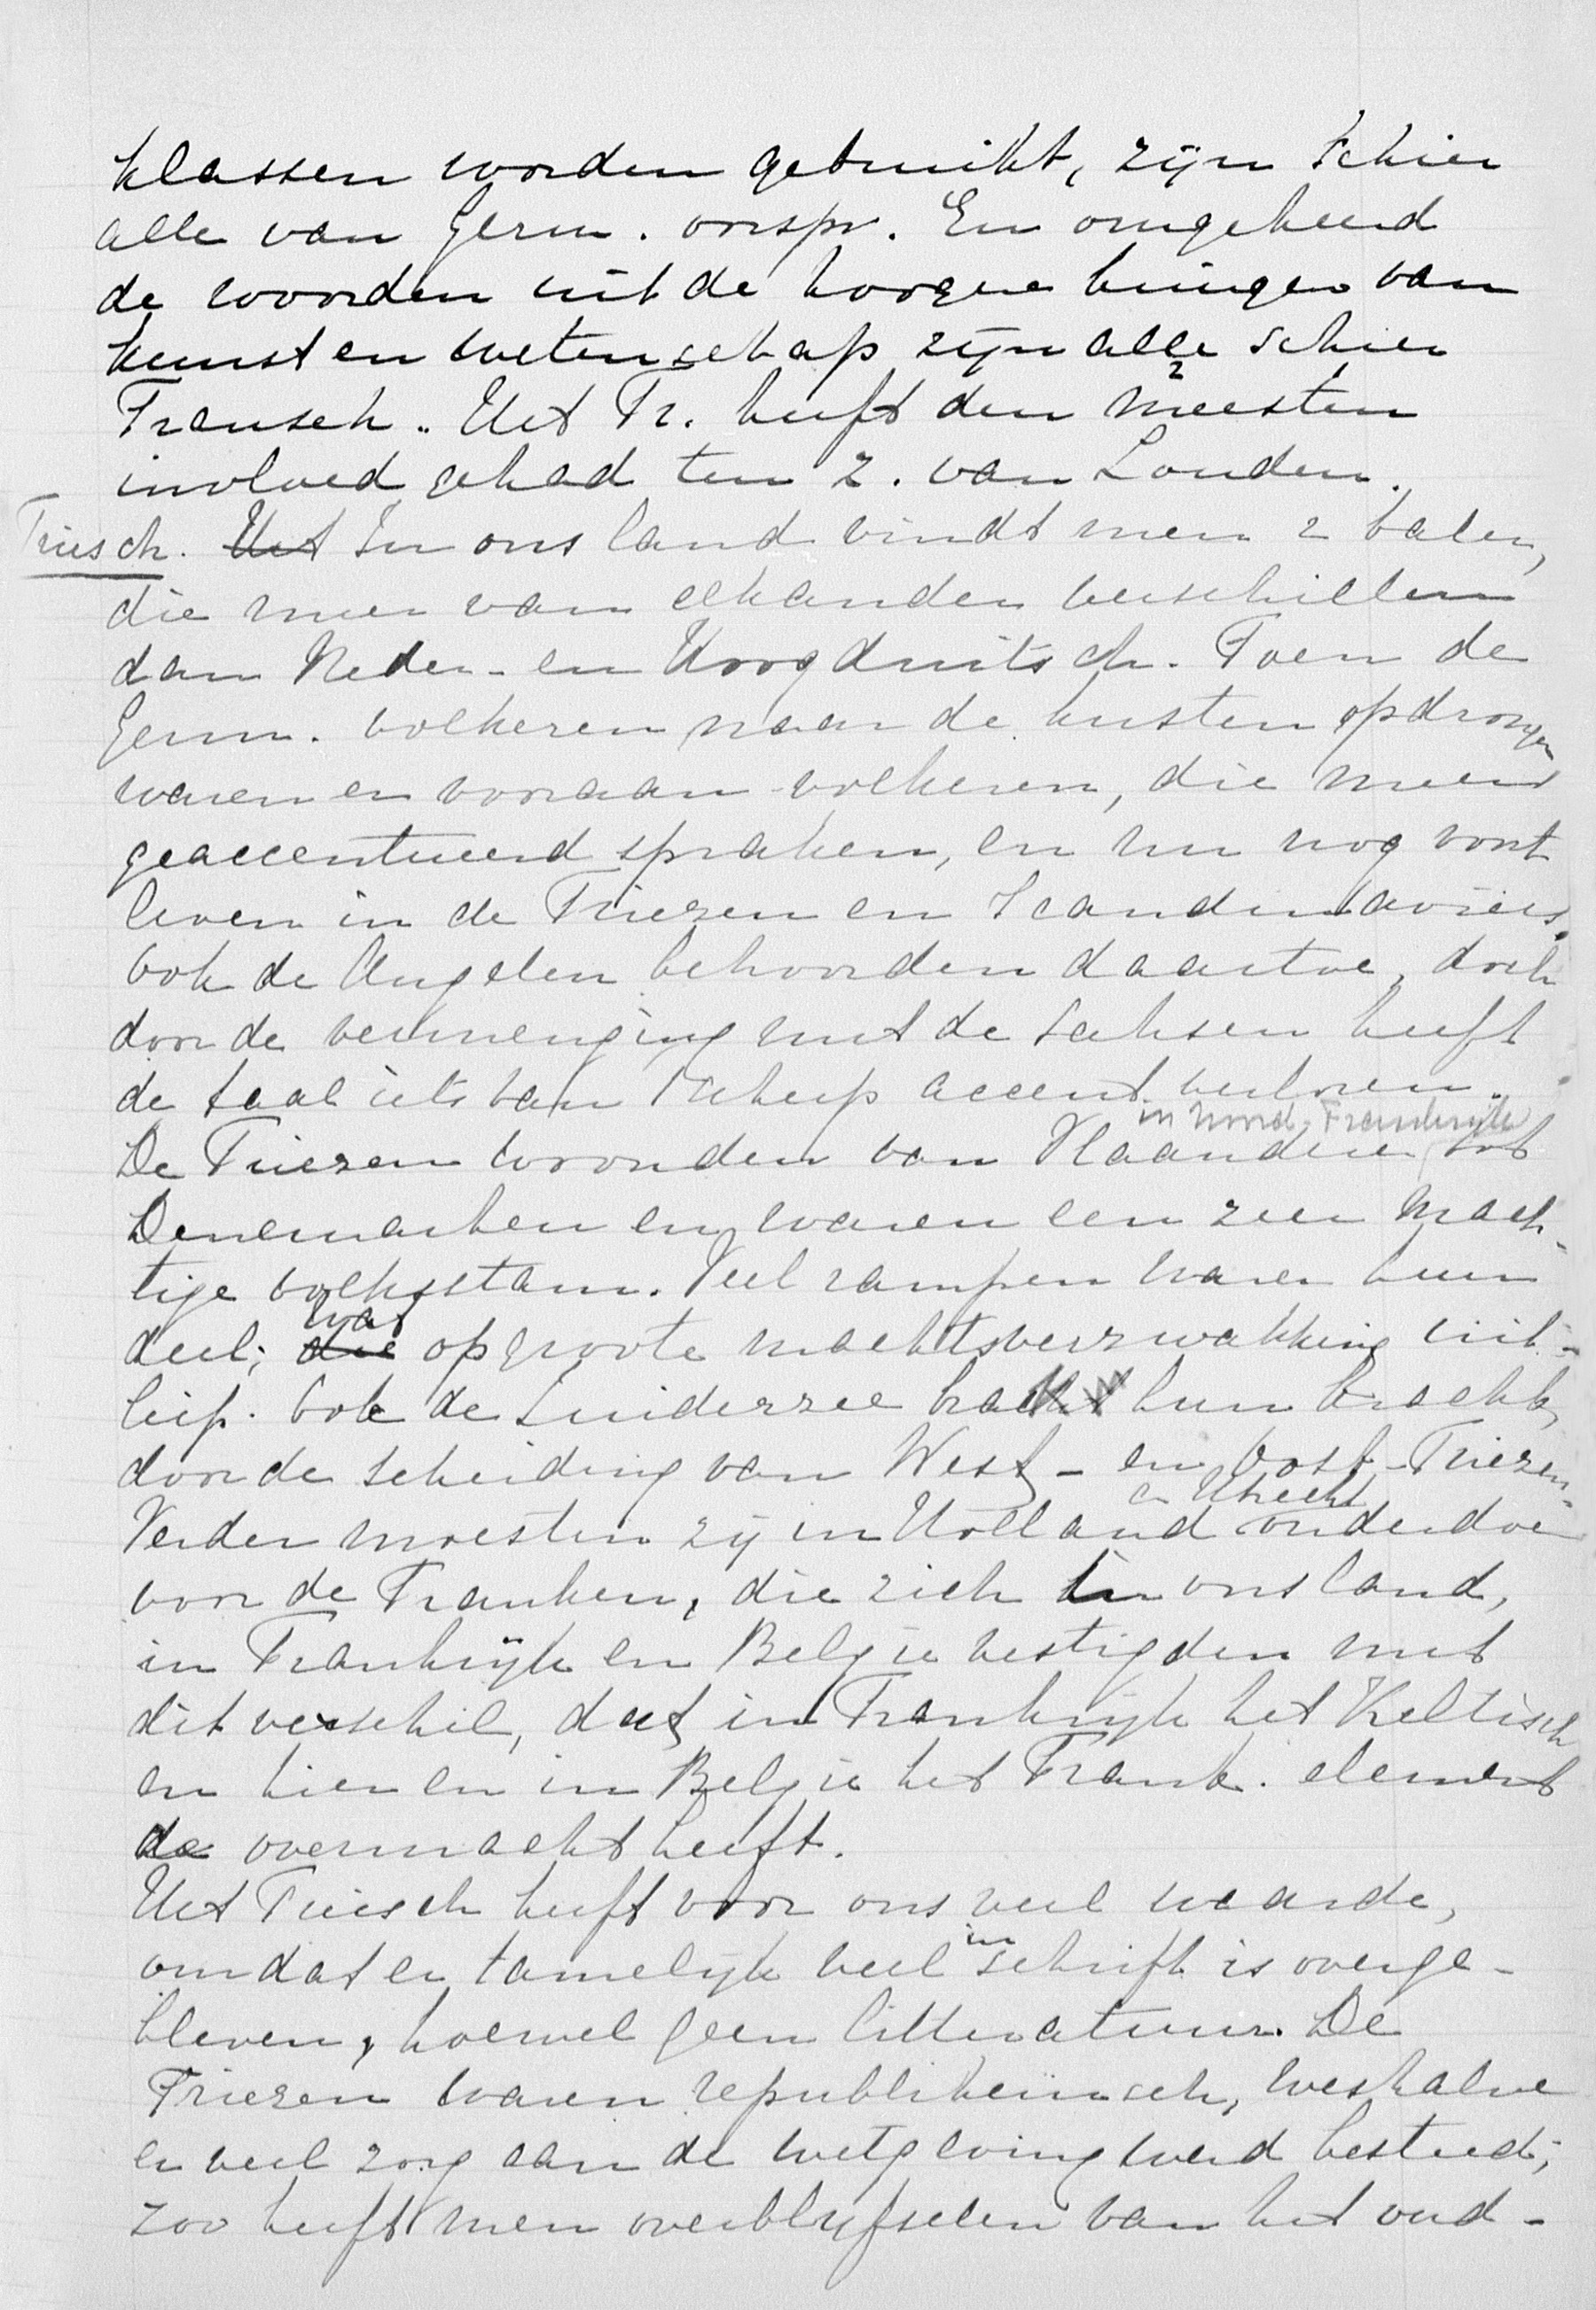 klassen worden gebruikt, zijn schier
alle van Germ. orspr. En omgekeerd
de woorden uit de hoogere kringen van
kunst en wetenschap zijn alle schier
Fransch. Het Fr. heeft den meesten
invloed gehad ten Z. van Londen.
Friesch. Het In ons land vindt men 2 talen,
die meer van elkander verschillen
dan Neder- en Hoogduitsch. Toen de
Germ. volkeren naar de kusten opdrongen
waren er vooraan volkeren, die meer
geaccentueerd spraken, en nu nog voort
leven in de Friezen en Scandinaviërs.
Ook de Angelen behoorden daartoe, doch
door de vermenging met de Saksen heeft
de taal iets van scherp accent verloren.
in Noord-Frankrijk
De Friezen woonden van Vlaanderen tot
Denemarken en waren een zeer mach-
tige volksstam. Veel rampen waren hun
wat
deel; die op groote machtsverzwakking uit-
liep. Ook de Zuiderzee bracht hun kracht,
door de scheiding van West- en Oost-Friezen.
en Utrecht
Verder moesten zij in Holland onderdoen
voor de Franken, die zich in ons land,
in Frankrijk en België vestigden met
dit verschil, dat in Frankrijk het Keltisch
en hier en in België het Frank. element
de overmacht heeft.
Het Friesch heeft voor ons veel waarde,
in
omdat er tamelijk veel schrift is overge-
bleven, hoewel geen litteratuur. De
Friezen waren republikeinsch, weshalve
er veel zorg aan de wetgeving werd besteed;
zoo heeft men overblijfselen van het oud-